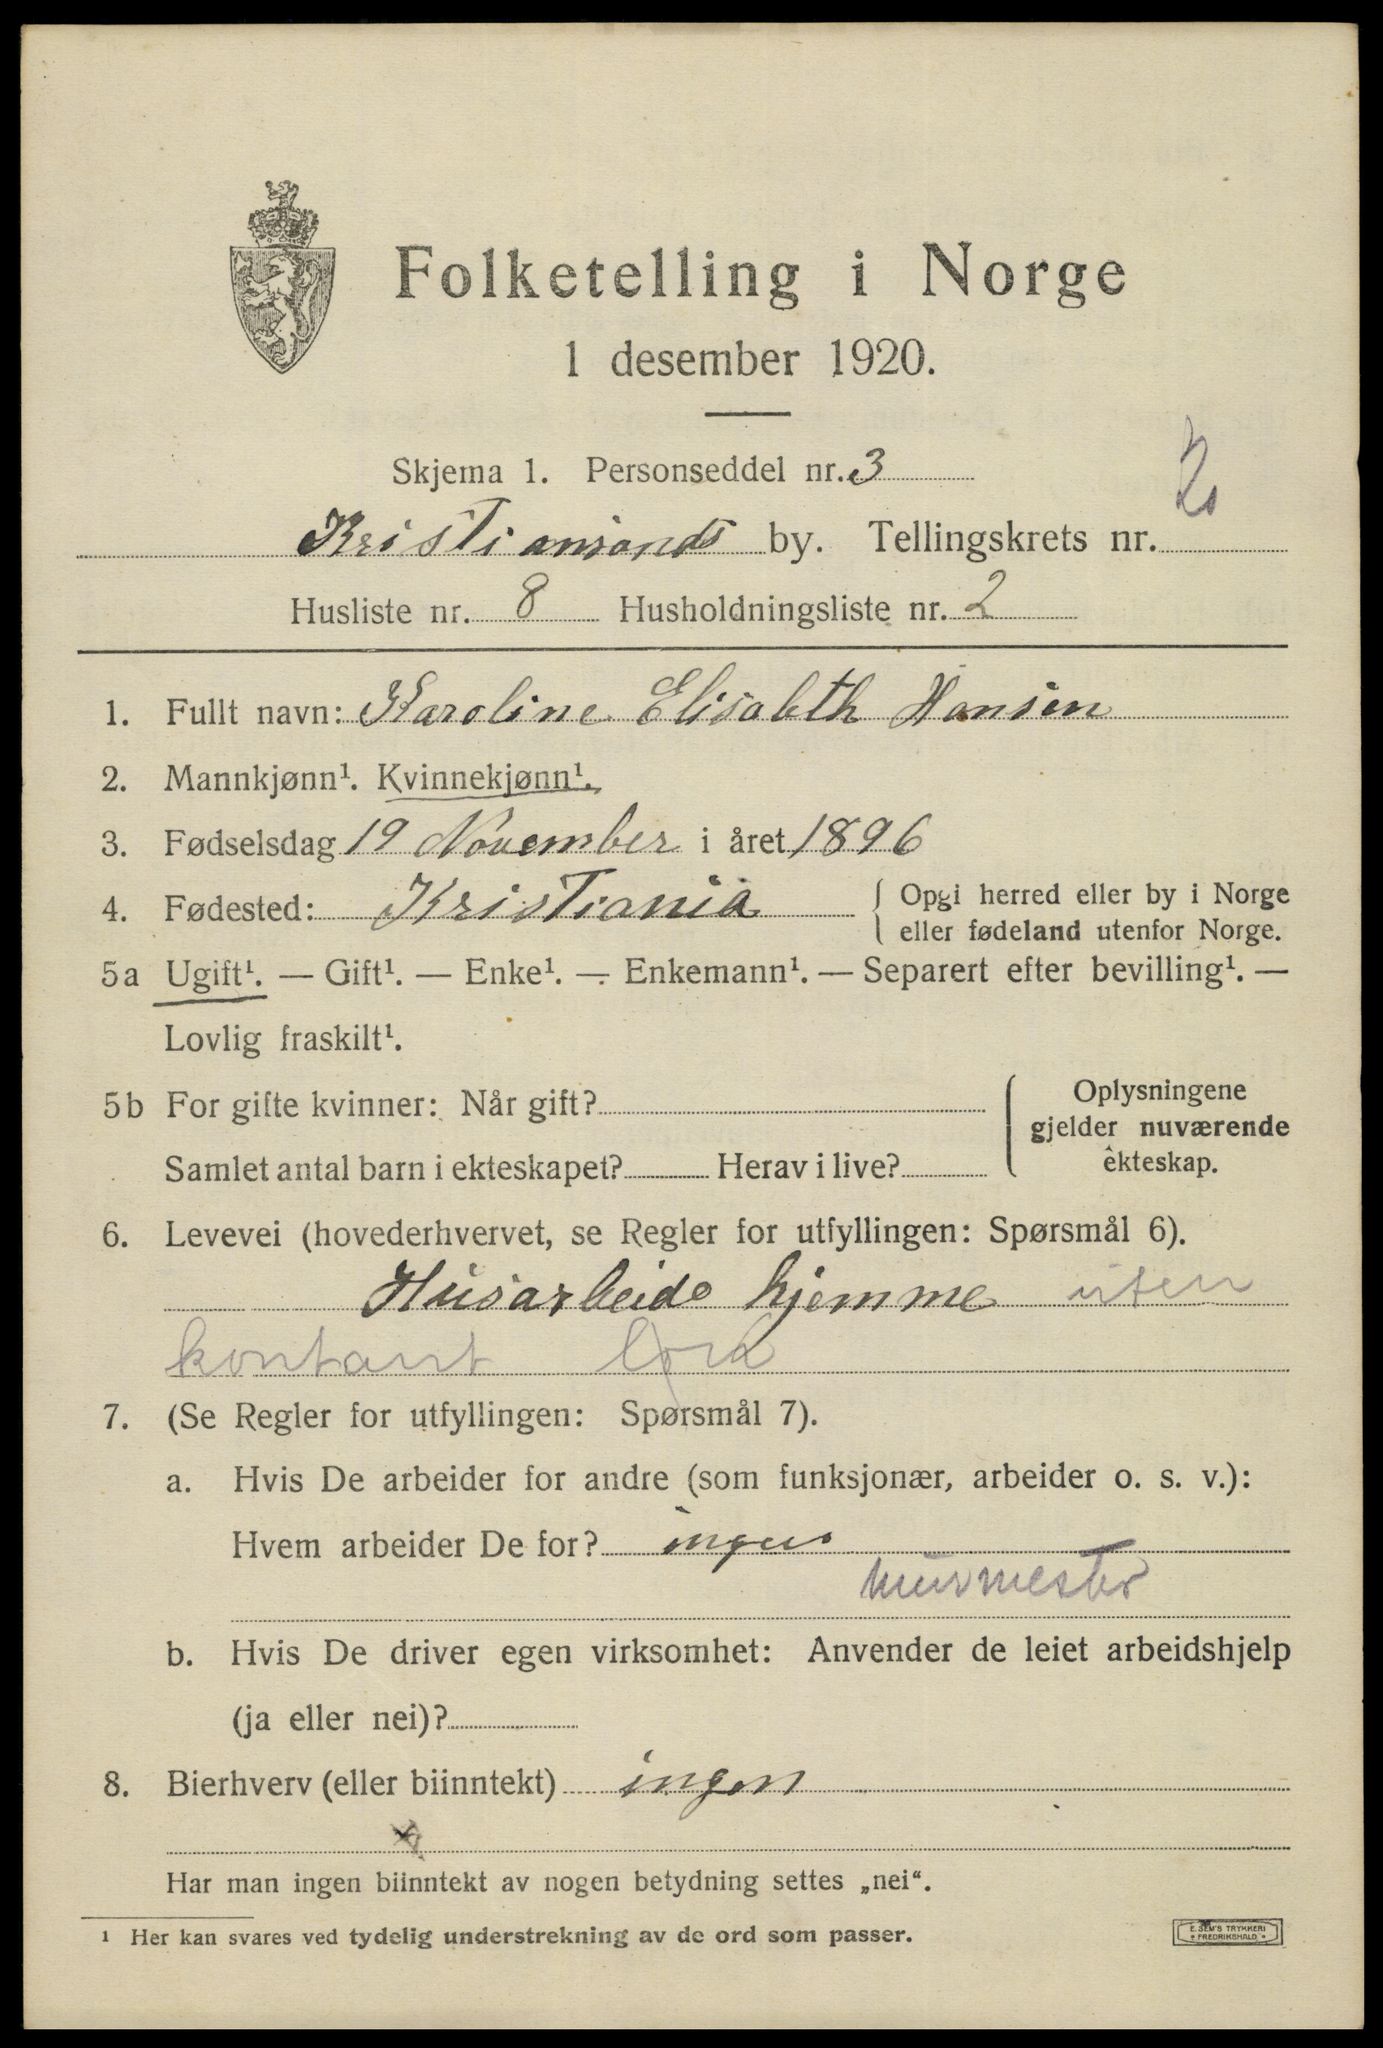 Folketelling i Norge
1 desember 1920.
Skjema 1. Personseddel nr. 3
Kristiansands by. Tellingskrets nr. 2
Husliste nr. 8 Husholdningsliste nr. 2
1. Fullt navn: Karoline Elisabeth Hansen
2. Mannkjønn¹. Kvinnekjønn¹.
3. Fødselsdag 19 November i året 1896
4. Fødested: Kristiania { Opgi herred eller by i Norge
eller fødeland utenfor Norge.
5a Ugift¹. — Gift¹. — Enke¹. — Enkemann¹. — Separert efter bevilling¹. —
Lovlig fraskilt¹.
5b For gifte kvinner: Når gift?
Samlet antal barn i ekteskapet? Herav i live?
Oplysningene
gjelder nuværende
ekteskap.
6. Levevei (hovederhvervet, se Regler for utfyllingen: Spørsmål 6).
Husarbeide hjemme uten
kontant løn
7. (Se Regler for utfyllingen: Spørsmål 7).
a. Hvis De arbeider for andre (som funksjonær, arbeider o. s. v.):
Hvem arbeider De for? ingen
murmester
b. Hvis De driver egen virksomhet: Anvender de leiet arbeidshjelp
(ja eller nei)?
8. Bierhverv (eller biinntekt) ingen
Har man ingen biinntekt av nogen betydning settes „nei“.
¹ Her kan svares ved tydelig understrekning av de ord som passer.
E. SEM'S TRYKKERI
FREDRIKSHALD